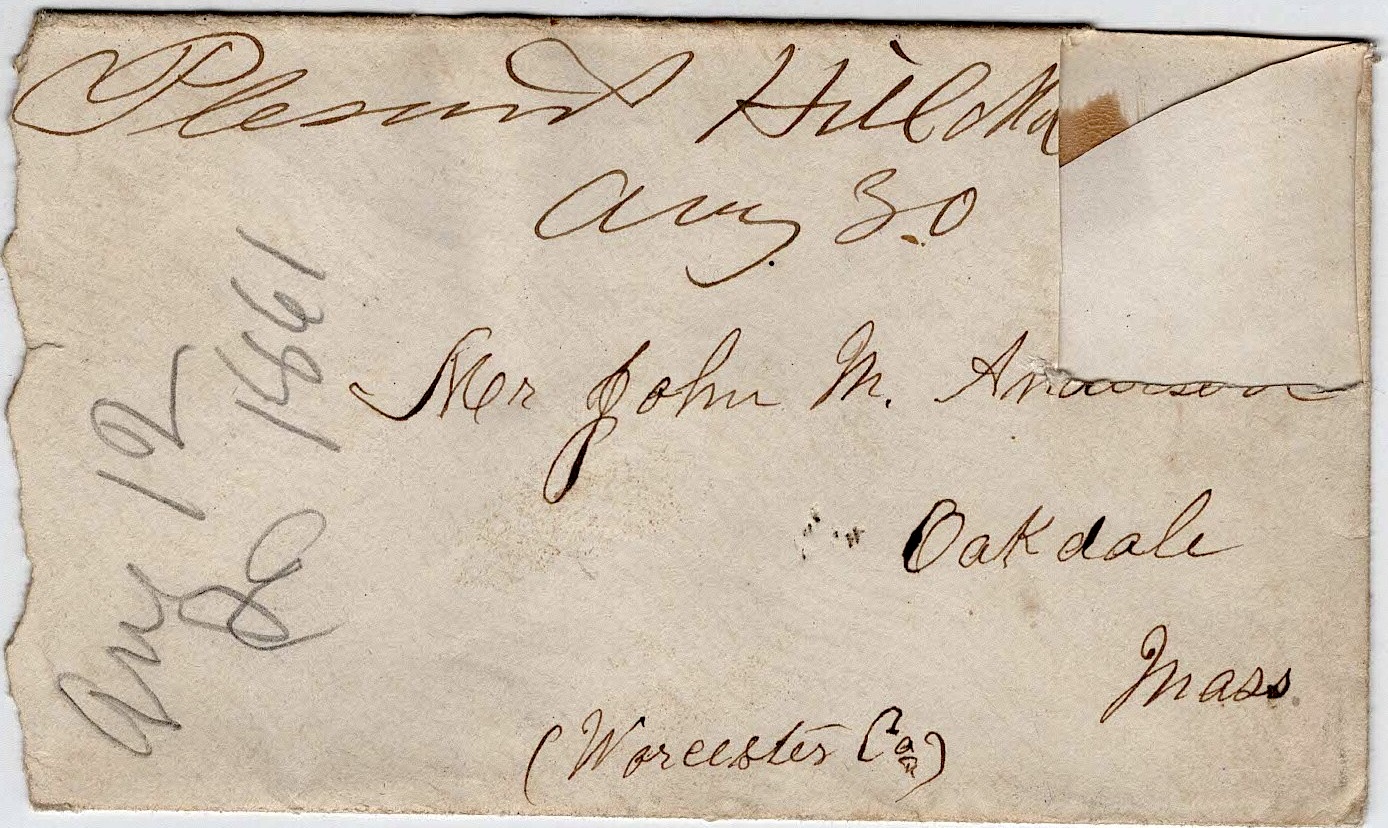 Plesant Hill Mo
Aug 30
Mr John M. Anderson
Oakdale
Mass
(Worcester Co)
Aug 12
1861